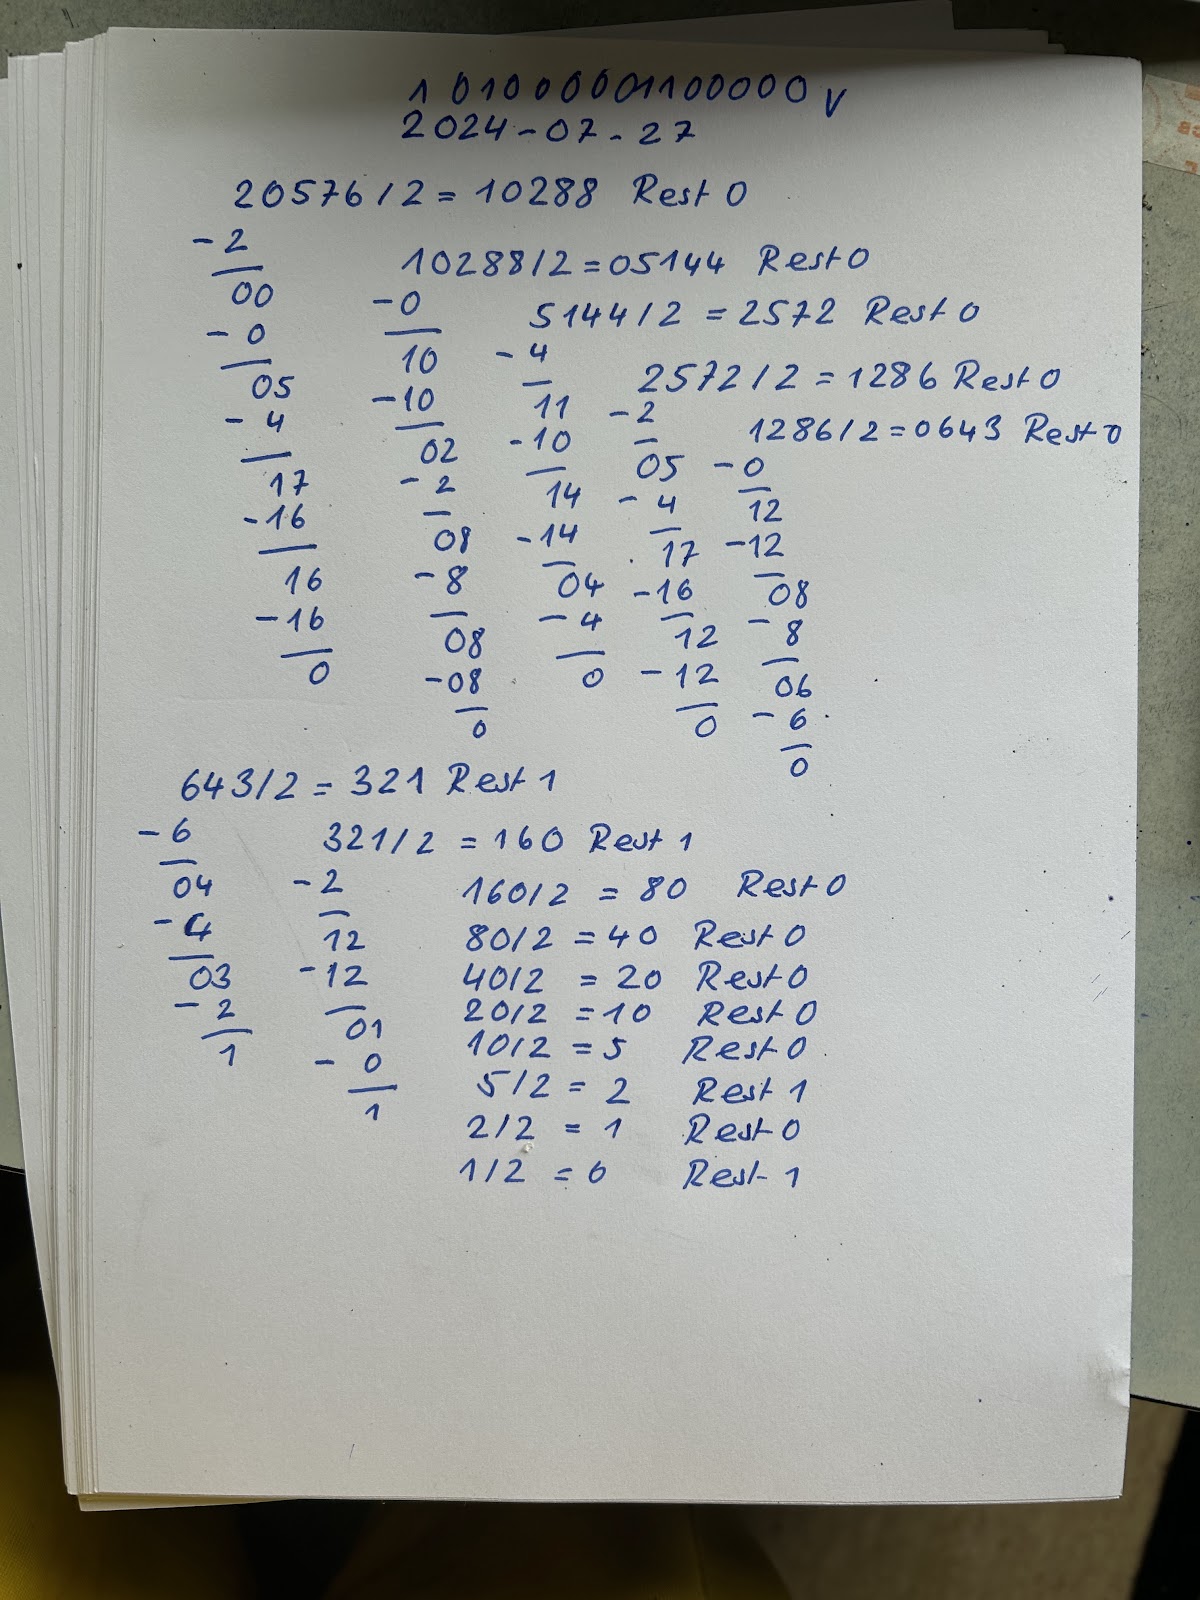 101000001100000 v
2024-07-27
20576/2=10288 Rest 0
-2
00
-0
05
-4
17
-16
16
-16
0
10288/2=05144 Rest 0
-0
10
-10
02
-2
08
-8
08
-08
0
5144/2=2572 Rest 0
-4
11
-10
14
-14
04
-4
0
2572/2=1286 Rest 0
-2
05
-4
17
-16
12
-12
0
1286/2=0643 Rest 0
-0
12
-12
08
-8
06
-6
0
643/2=321 Rest 1
-6
04
-4
03
-2
1
321/2=160 Rest 1
-2
12
-12
01
-0
1
160/2=80 Rest 0
80/2=40 Rest 0
40/2=20 Rest 0
20/2=10 Rest 0
10/2=5 Rest 0
5/2=2 Rest 1
2/2=1 Rest 0
1/2=0 Rest 1